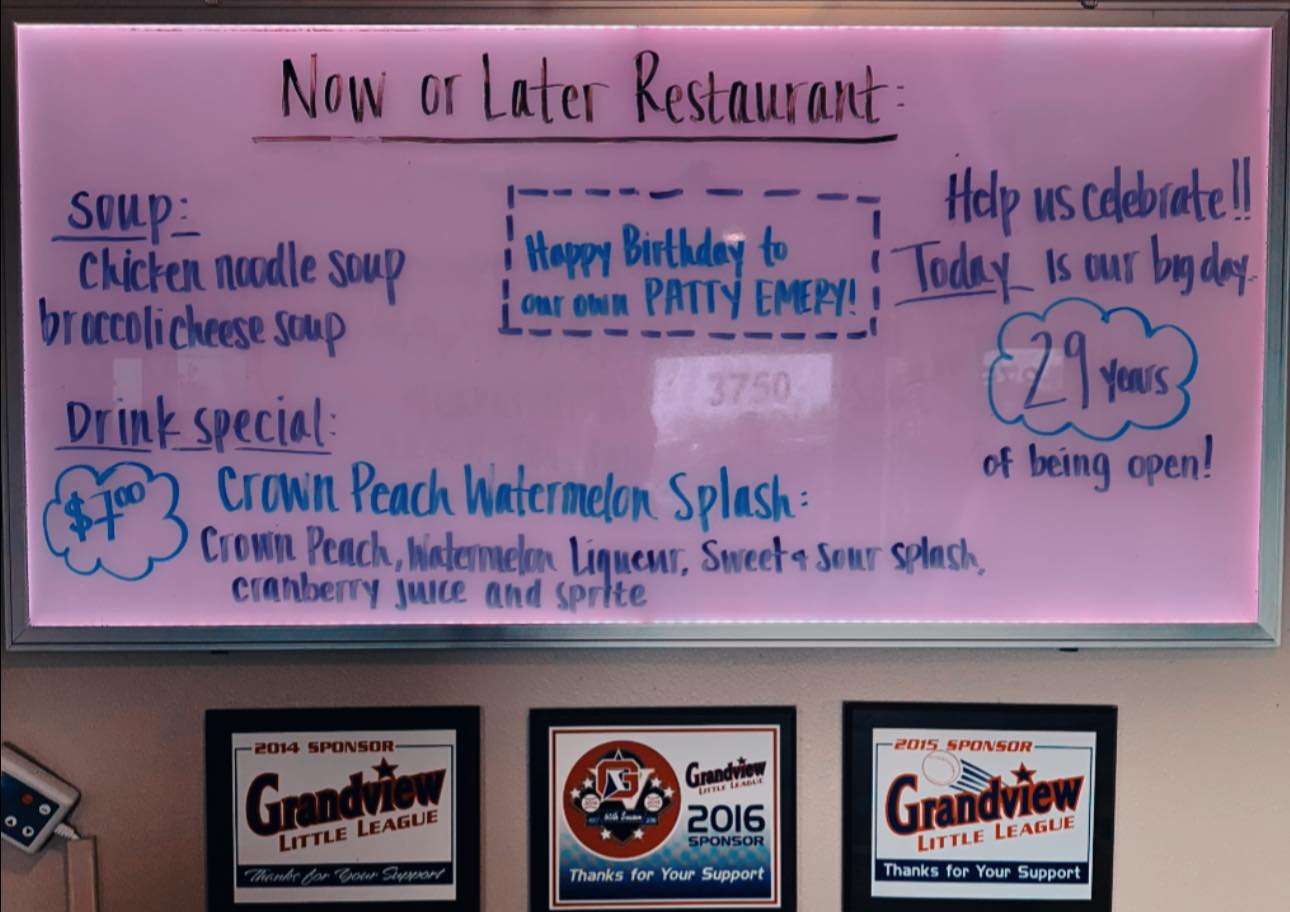 Now or Later Restaurant:
Soup:
Chicken noodle soup
broccoli cheese soup
Happy Birthday to
our own PATTY EMERY!
Help us celebrate!!
Today is our big day.
29 years
of being open!
3750
Drink special:
$7.00
Crown Peach Watermelon Splash:
Crown Peach, Watermelon Liqueur, Sweet & Sour splash,
cranberry juice and sprite
2014 SPONSOR
Grandview
LITTLE LEAGUE
Thanks for Your Support
G
60th Season
Grandview
LITTLE LEAGUE
2016
SPONSOR
Thanks for Your Support
2015 SPONSOR
Grandview
LITTLE LEAGUE
Thanks for Your Support